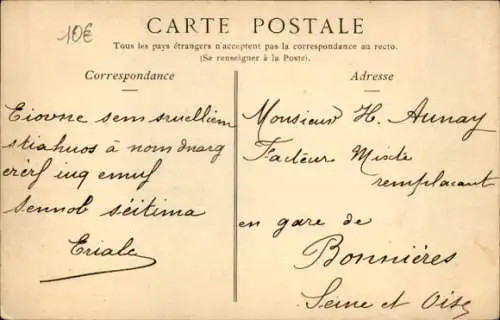 10€
CARTE POSTALE
Tous les pays étrangers n'acceptent pas la correspondance au recto.
(Se renseigner à la Poste).
Correspondance
Eiovne sem sruelliem
stiahuos à nom dnarg
erèrf iuq emuf
sennob séitima
Eriale
Adresse
Monsieur H. Aunay
Facteur Mixte
remplaçant
en gare de
Bonnières
Seine et Oise